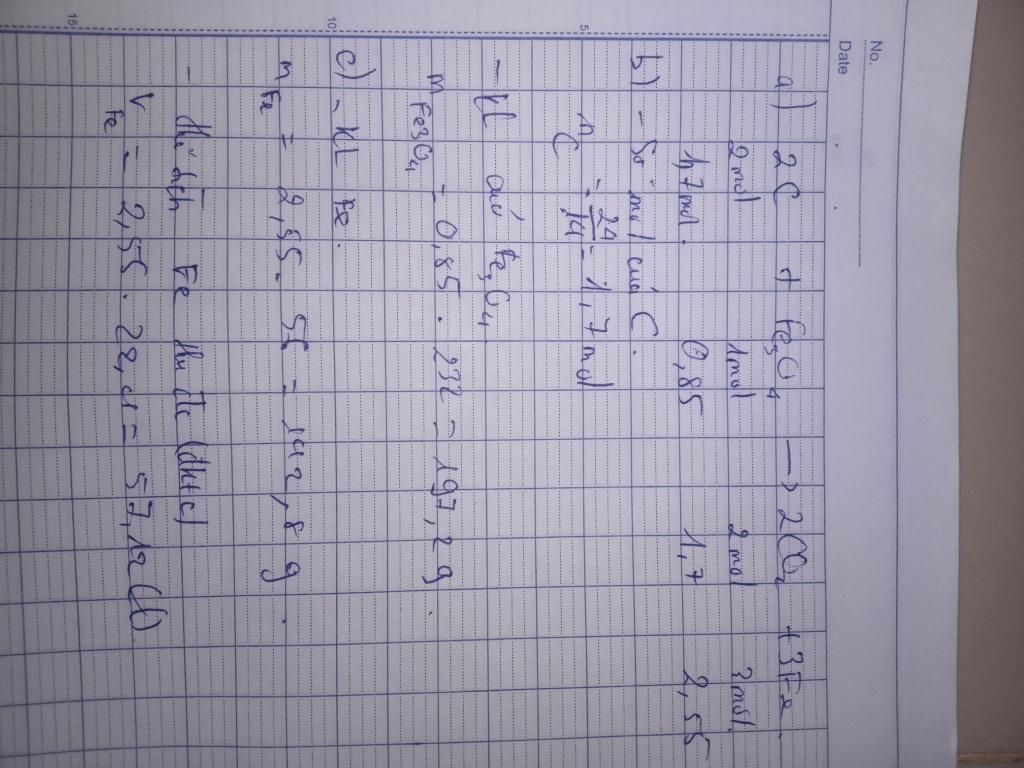 No.
Date
a) 2C + Fe3O4 → 2CO2 + 3Fe.
2mol 1mol 2mol 3mol
1,7mol. 0,85 1,7 2,55
b) - Số mol của C.
nC = 24/14 = 1,7mol
5
- kl của Fe3O4
mFe3O4 = 0,85. 232 = 197,2g.
10
c) - kl Fe.
mFe = 2,55. 56 = 142,8g.
- thể tích Fe thu đc (đktc)
VFe = 2,55. 22,4 = 57,12(l)
15